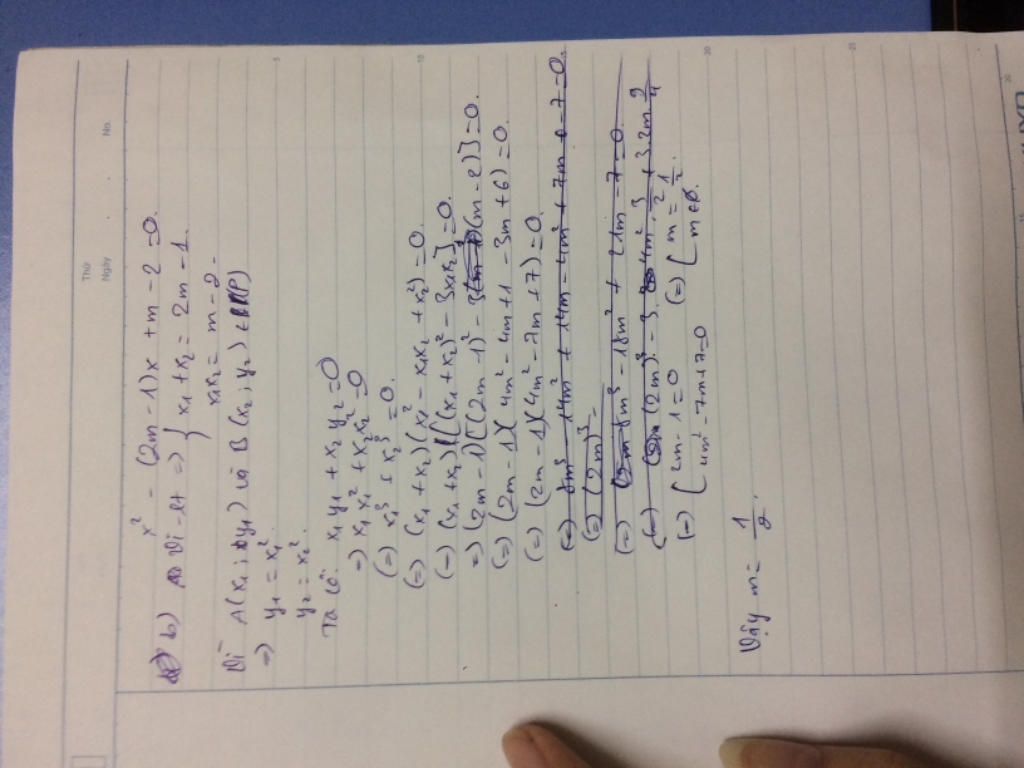 Thứ
Ngày
No.
x² - (2m - 1)x + m - 2 = 0.
b) Vi-ét => { x₁ + x₂ = 2m - 1.
x₁x₂ = m - 2.
Vì A(x₁; y₁) và B(x₂; y₂) ∈ (P)
=> y₁ = x₁²
y₂ = x₂²
Ta có: x₁y₁ + x₂y₂ = 0
=> x₁x₁² + x₂x₂² = 0
(=) x₁³ + x₂³ = 0.
(=) (x₁ + x₂)(x₁² - x₁x₂ + x₂²) = 0.
(=) (x₁ + x₂)[(x₁ + x₂)² - 3x₁x₂] = 0.
=> (2m - 1)[(2m - 1)² - 3(m - 2)] = 0.
(=) (2m - 1)(4m² - 4m + 1 - 3m + 6) = 0.
(=) (2m - 1)(4m² - 7m + 7) = 0.
(=) 8m³ - 14m² + 14m - 4m² + 7m - 7 = 0.
(=) (2m)³ -
(=) 8m³ - 18m² + 21m - 7 = 0.
(=) (2m)³ - 3. 4m². 3/2 + 3.2m. 9/4
(=) [ 2m - 1 = 0 (=) [ m = 1/2.
4m² - 7m + 7 = 0 m ∈ ∅.
Vậy m = 1/2.
5
10
20
25